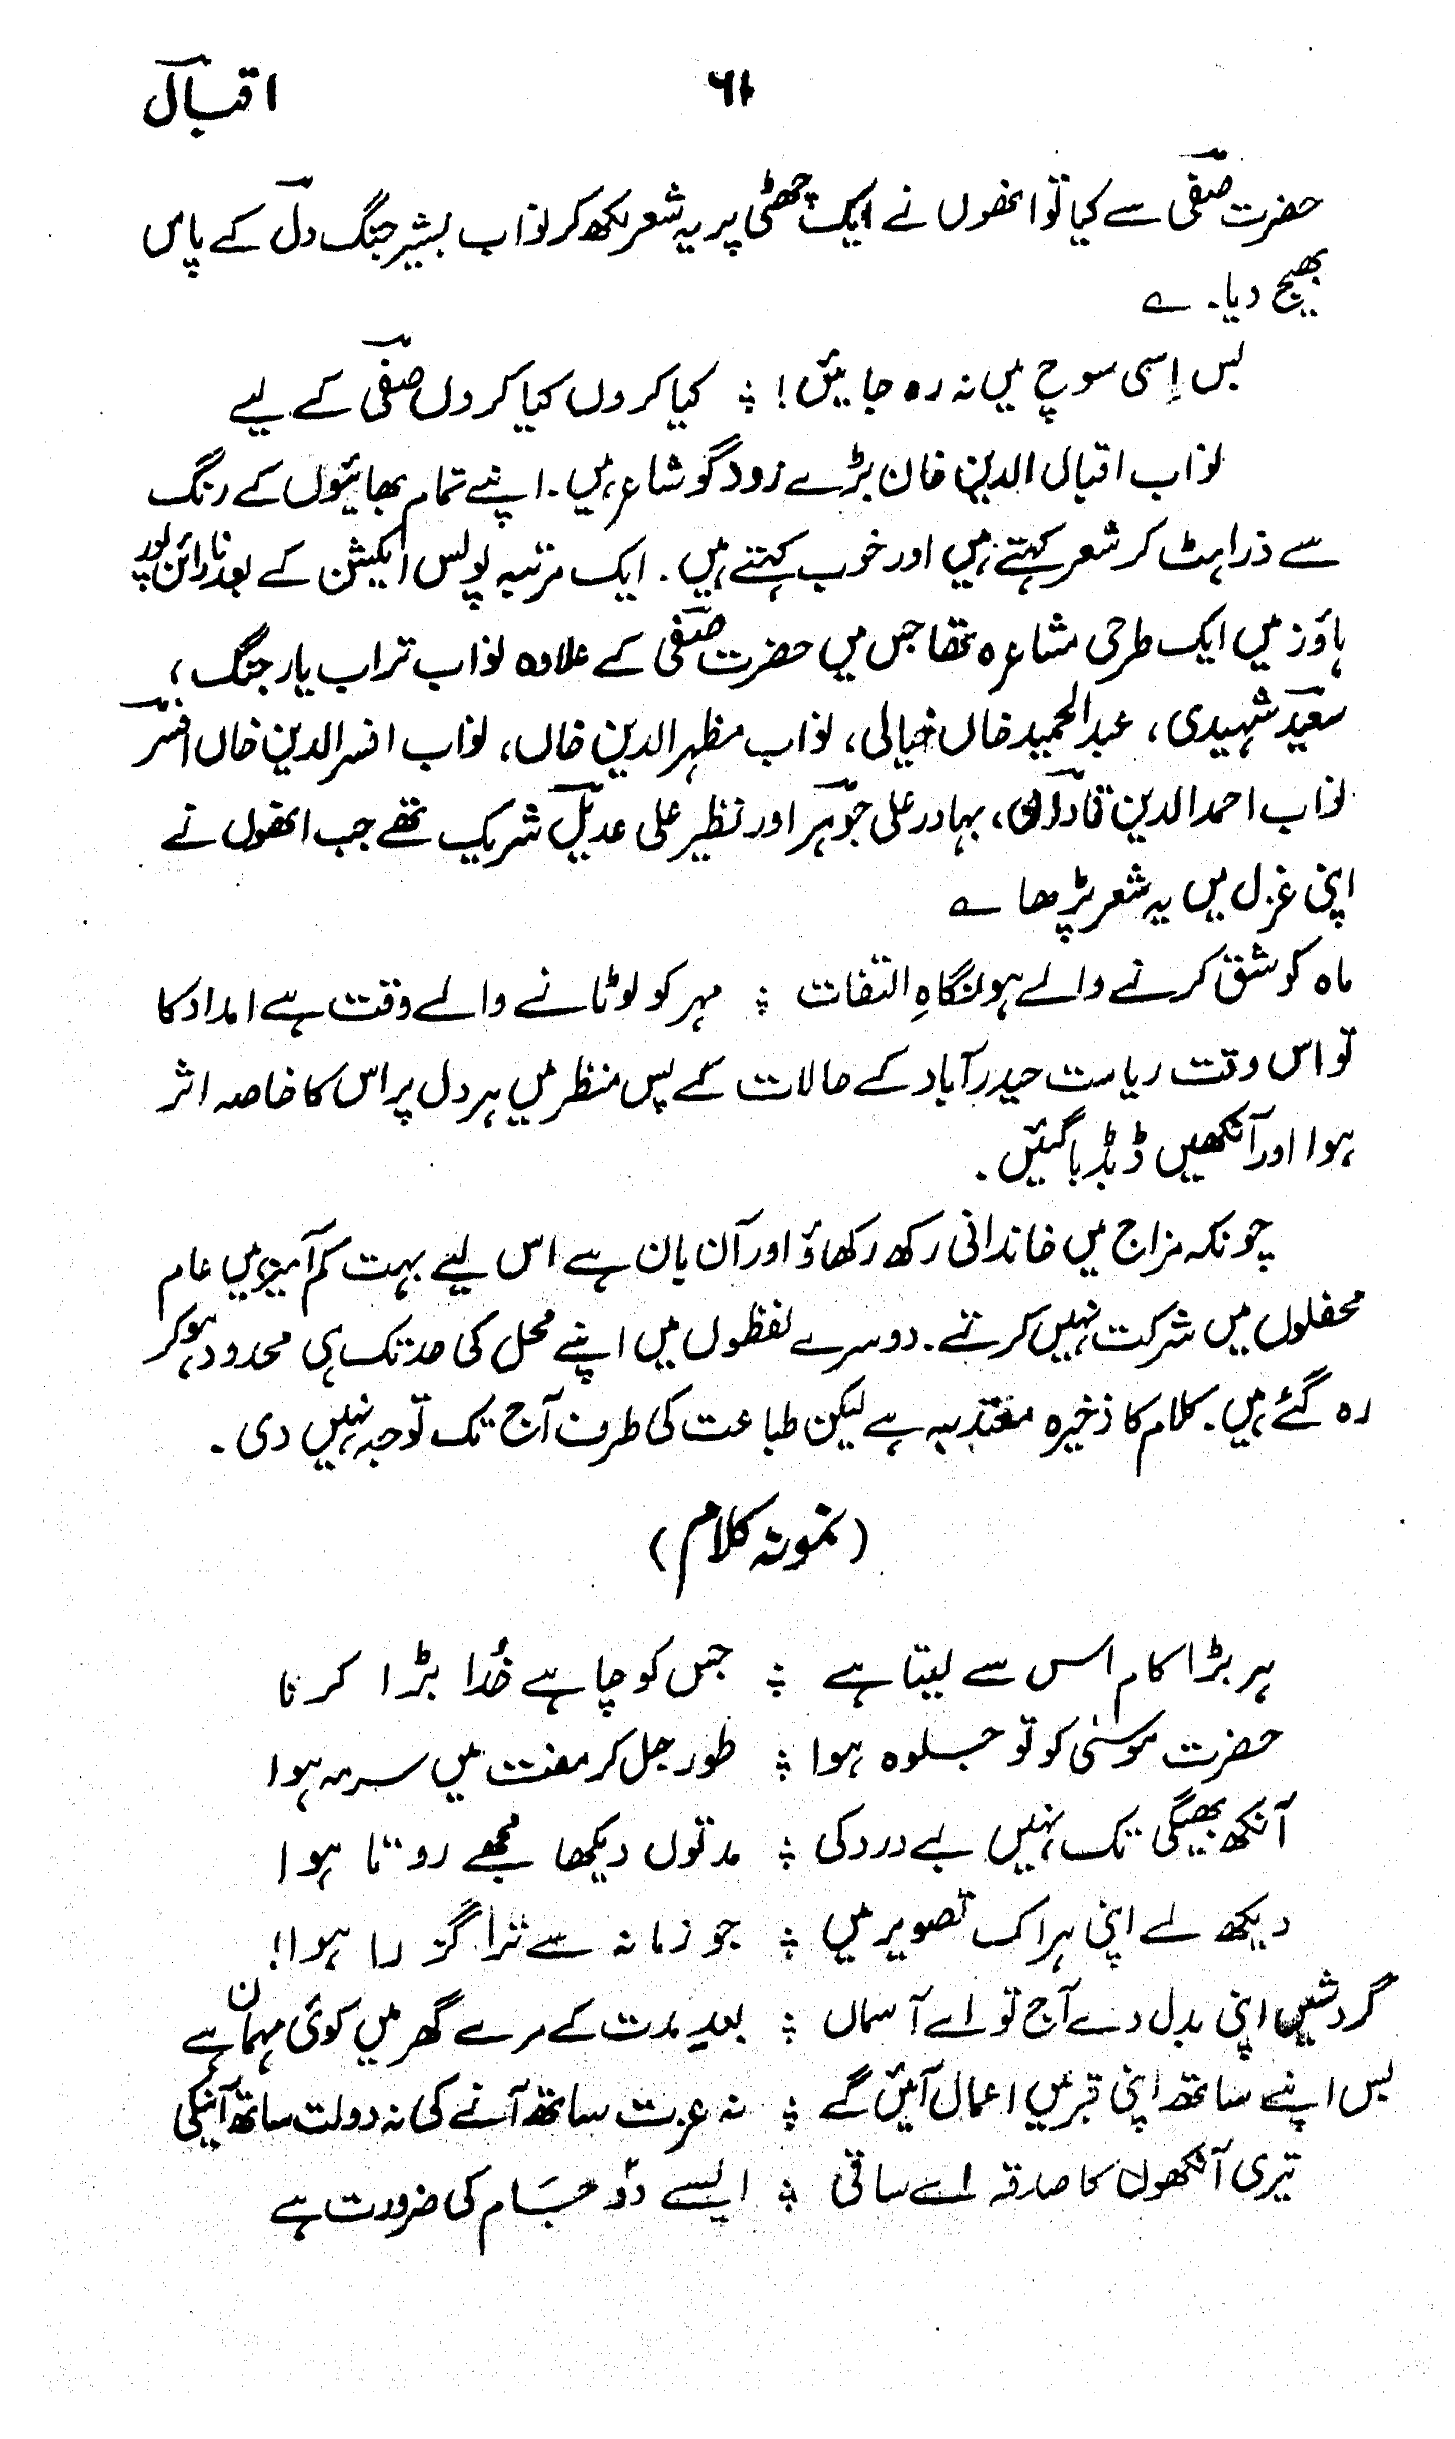 ۶۱ اقبال
حضرت صفی سے کیا تو انھوں نے ایک چھٹی پر یہ شعر لکھ کر نواب بشیر جنگ دل کے پاس
بھیج دیا۔ ؎
بس اِسی سوچ میں نہ رہ جائیں! ؞ کیا کروں کیا کروں صفی کے لیے
نواب اقبال الدین خان بڑے زود گو شاعر ہیں۔ اپنے تمام بھائیوں کے رنگ
سے ذرا ہٹ کر شعر کہتے ہیں اور خوب کہتے ہیں۔ ایک مرتبہ پولس ایکشن کے بعد نارائن پور
ہاؤز میں ایک طرحی مشاعرہ تھا جس میں حضرت صفی کے علاوہ نواب تراب یار جنگ،
سعید شہیدی، عبدالحمید خاں خیالی، نواب مظہر الدین خاں، نواب افسر الدین خاں افسر
نواب احمد الدین، بہادر علی جوہر اور نظیر علی عدیل شریک تھے جب انھوں نے
اپنی غزل میں یہ شعر پڑھا ؎
ماہ کو شق کرنے والے ہو نگاہِ التفات ؞ مہر کو لوٹانے والے وقت ہے امداد کا
تو اس وقت ریاست حیدرآباد کے حالات کے پس منظر میں ہر دل پر اس کا خاصہ اثر
ہوا اور آنکھیں ڈبڈبا گئیں۔
چونکہ مزاج میں خاندانی رکھ رکھاؤ اور آن بان ہے اس لیے بہت کم آمیز ہیں عام
محفلوں میں شرکت نہیں کرتے۔ دوسرے لفظوں میں اپنے محل کی حد تک ہی محدود ہو کر
رہ گئے ہیں۔ کلام کا ذخیرہ معتدبہ ہے لیکن طباعت کی طرف آج تک توجہ نہیں دی۔
(نمونہ کلام)
ہر بڑا کام اس سے لیتا ہے ؞ جس کو چاہے خُدا بڑا کرنا
حضرت موسیٰ کو تو جلوہ ہوا ؞ طور جل کر مفت میں سرمہ ہوا
آنکھ بھیگی تک نہیں بے درد کی ؞ مدتوں دیکھا مجھے روتا ہوا
دیکھ لے اپنی ہر اک تصویر میں ؞ جو زمانہ سے ترا گزرا ہوا!
گردشیں اپنی بدل دے آج تو اے آسماں ؞ بعد مدت کے مرے گھر میں کوئی مہمان ہے
بس اپنے ساتھ اپنی قبر میں اعمال آئیں گے ؞ نہ عزت ساتھ آنے کی نہ دولت ساتھ آئیگی
تیری آنکھوں کا صدقہ اے ساقی ؞ ایسے دو جام کی ضرورت ہے